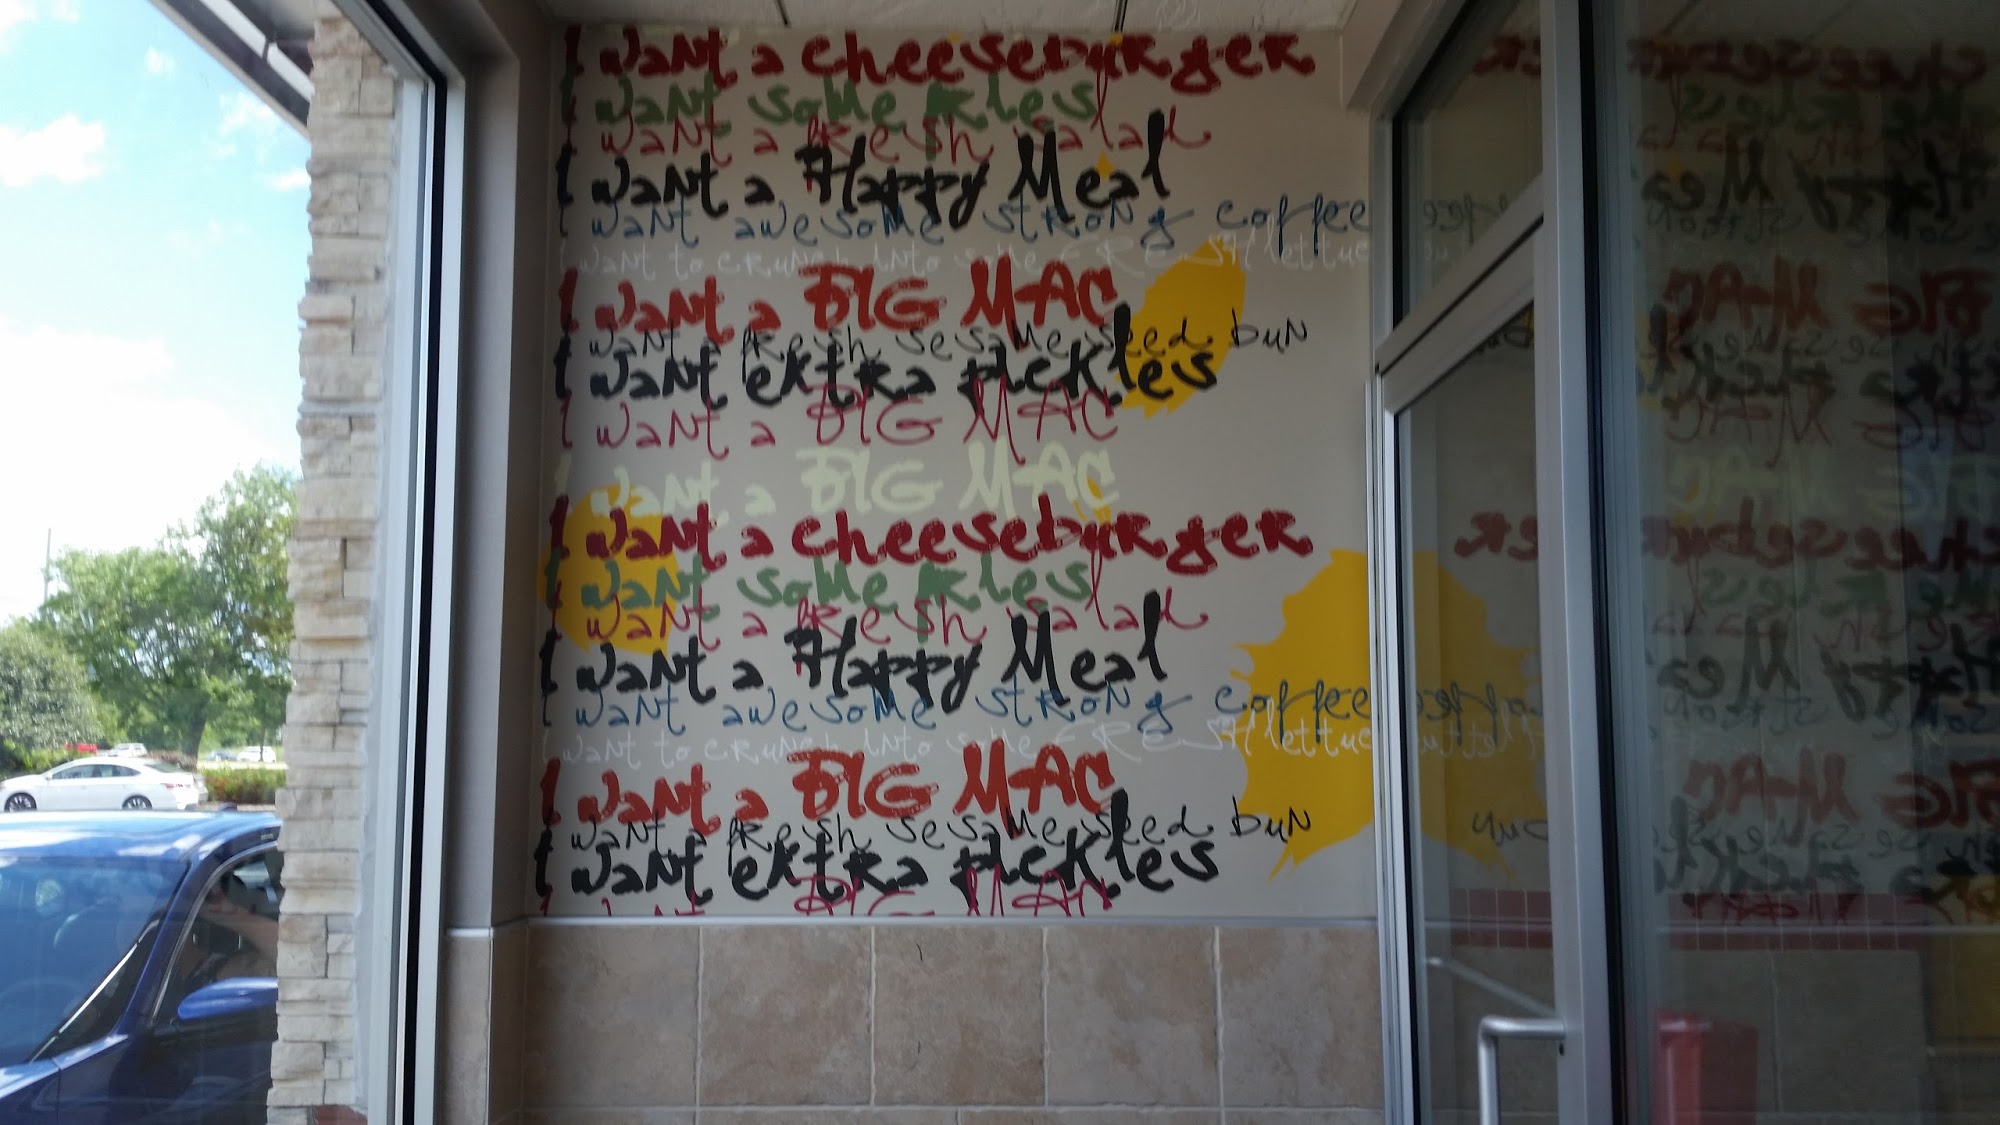 I want a cheeseburger
I want some
I want a fresh salad
I want a Happy Meal
I want awesome strong coffee
I want to crunch into some FRESH lettuce
I want a BIG MAC
I want a fresh sesame seed bun
I want extra pickles
I want a BIG MAC
I want a BIG MAC
I want a cheeseburger
I want some
I want a fresh salad
I want a Happy Meal
I want awesome strong coffee
I want to crunch into some FRESH lettuce
I want a BIG MAC
I want a fresh sesame seed bun
I want extra pickles
I want a BIG MAC